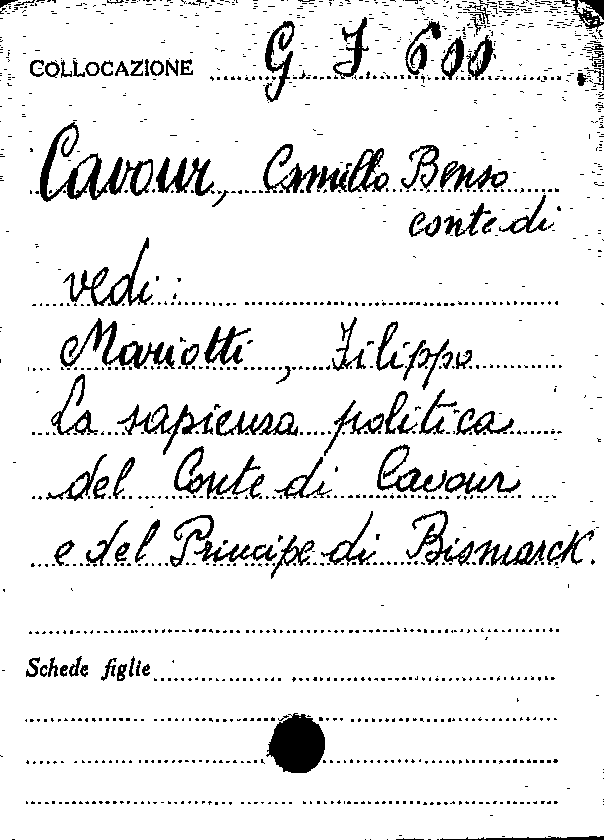 COLLOCAZIONE G. J. 600
Cavour, Camillo Benso
conte di
vedi:
Mariotti, Filippo
La sapienza politica
del Conte di Cavour
e del Principe di Bismarck.
Schede figlie